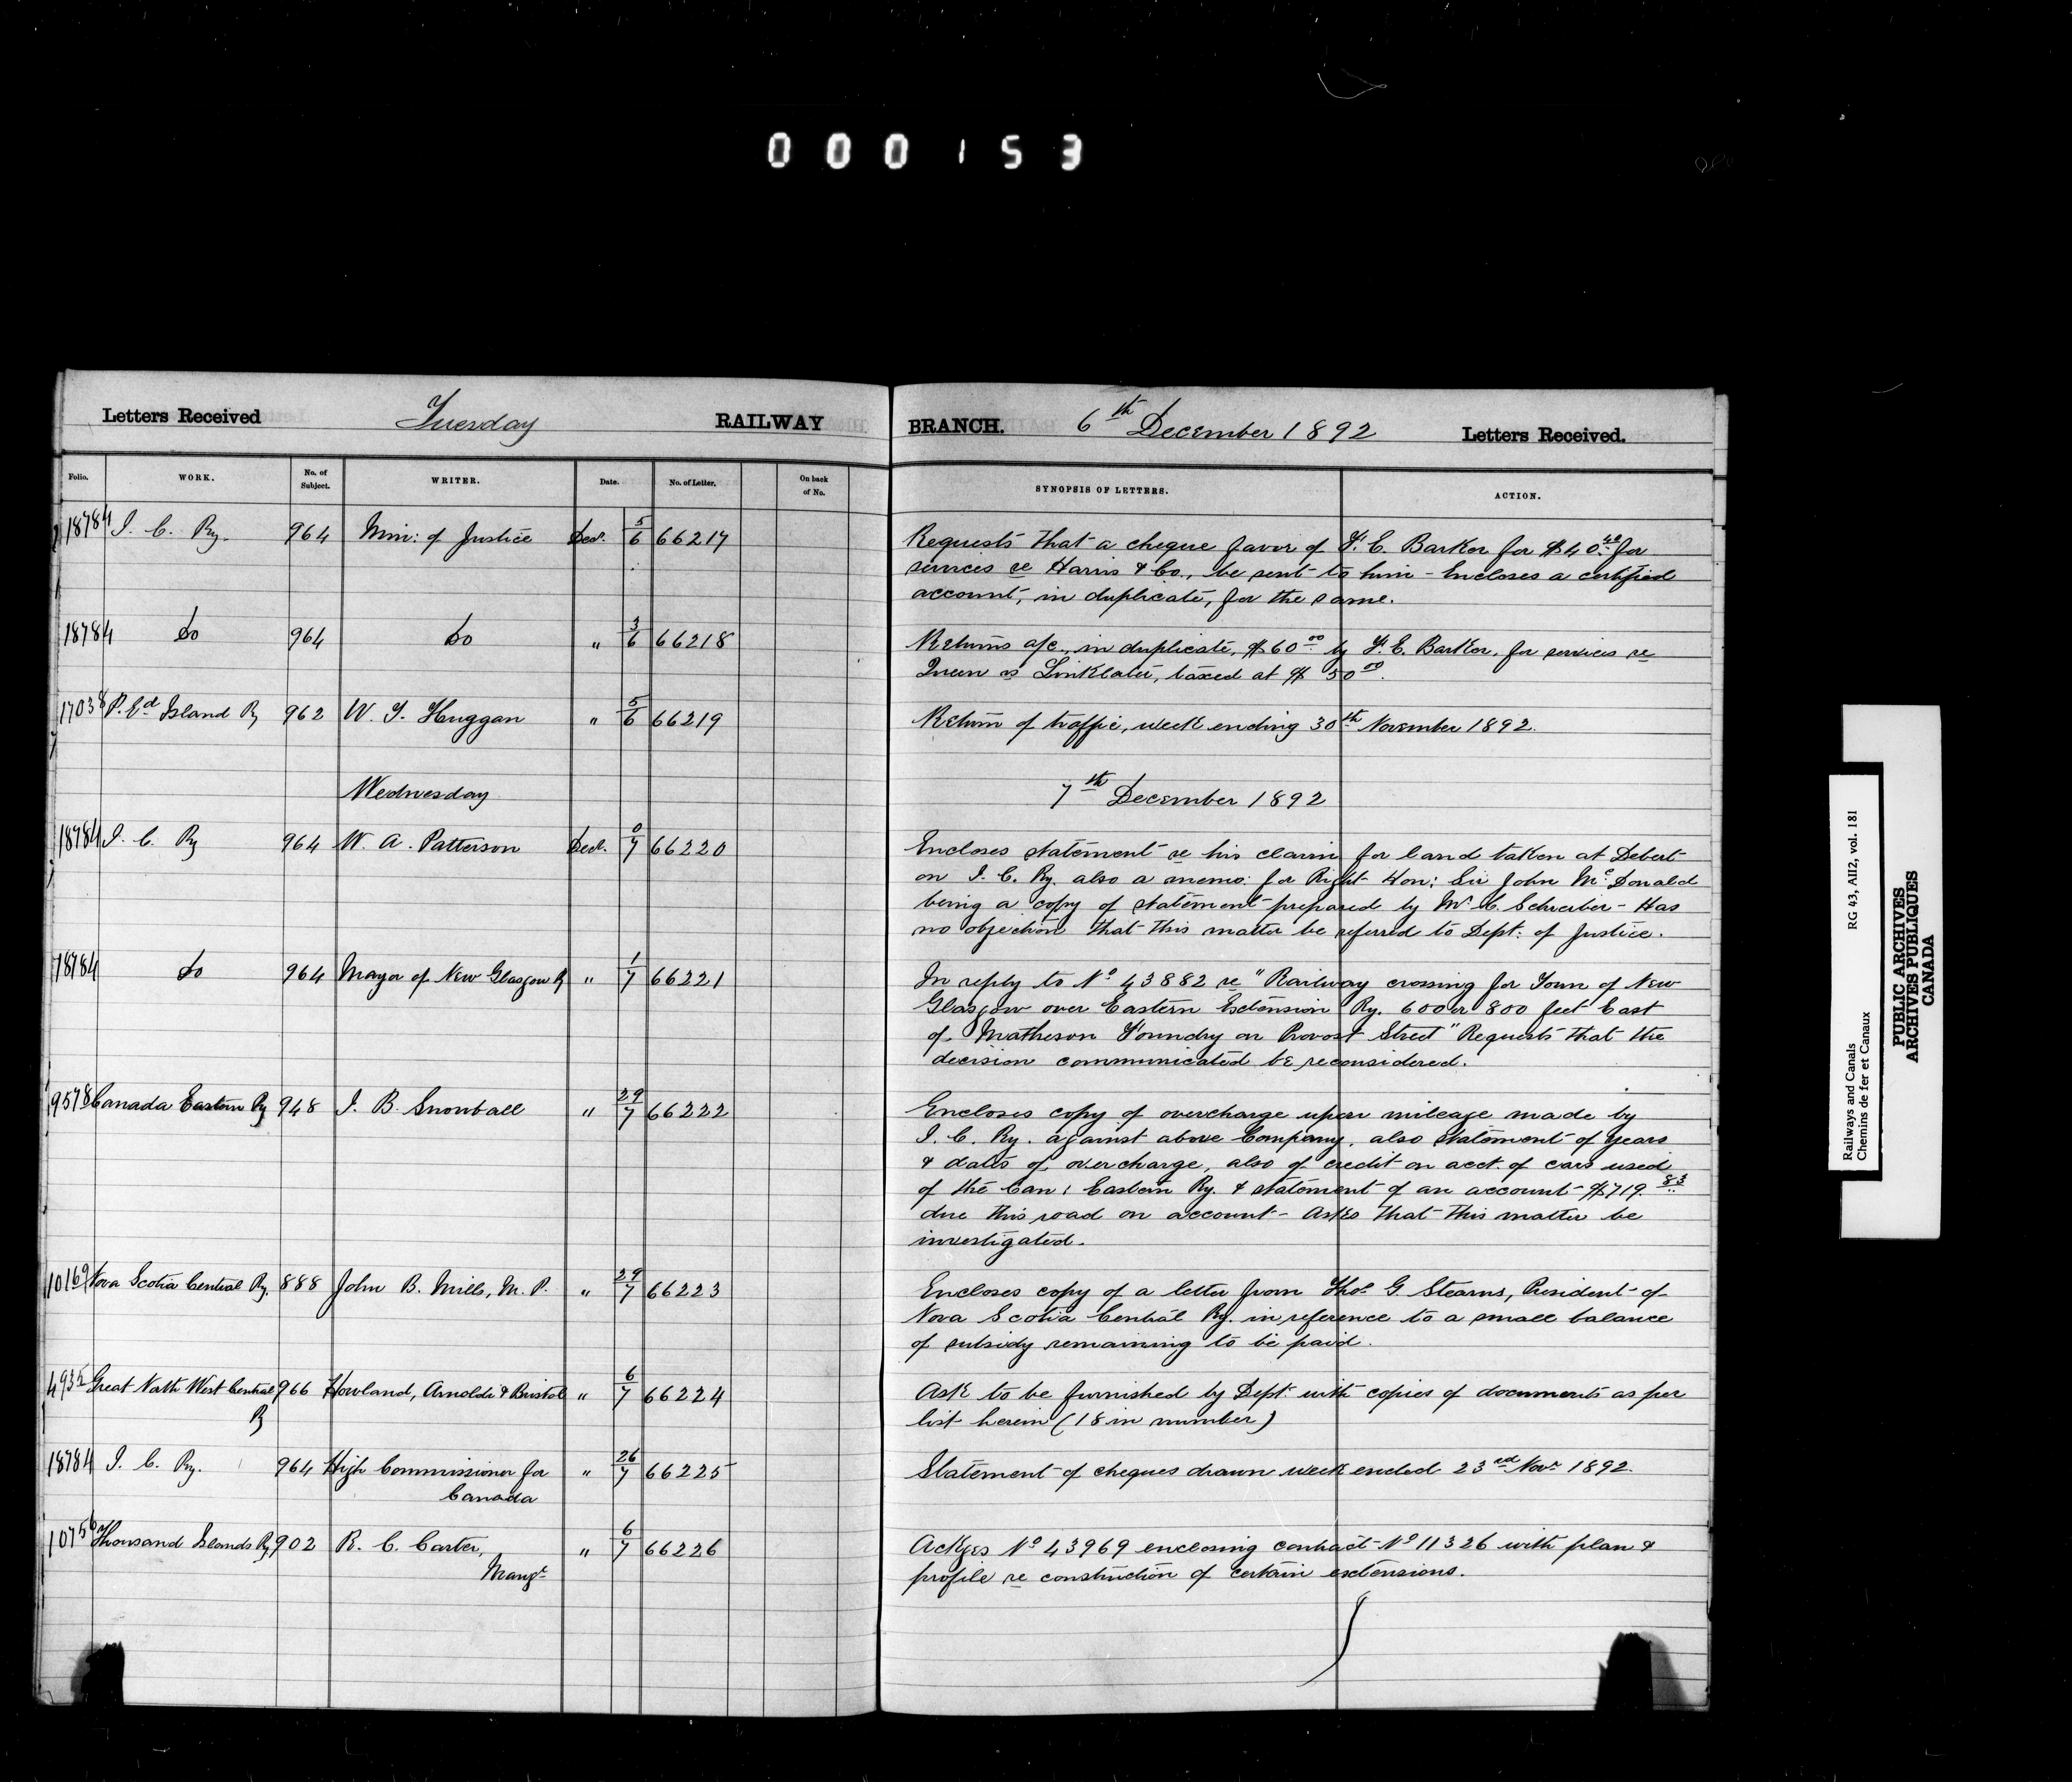 000153
Letters Received Tuesday RAILWAY BRANCH. 6th December 1892 Letters Received.
Folio. WORK. No. of Subject. WRITER. Date. No. of Letter. On back of No. SYNOPSIS OF LETTERS. ACTION.
18784 I. C. Ry. 964 Min: of Justice Decr. 5/6 66217 Requests that a cheque favor of F. E. Barker for $40.42 for
services re Harris & Co., be sent to him - Encloses a certified
account, in duplicate, for the same.
18784 do 964 do " 3/6 66218 Returns a/c., in duplicate, $60.00 by F. E. Barker, for services re
Queen vs Linklater, taxed at $50.00.
17038 P. Ed Island Ry 962 W. T. Huggan " 5/6 66219 Return of traffic, week ending 30th November 1892.
Wednesday 7th December 1892
18784 I. C. Ry 964 W. A. Patterson Decr. 0/7 66220 Encloses statement re his claim for land taken at Debert
on I. C. Ry. also a memo: for Right Hon: Sir John McDonald
being a copy of statement prepared by Mr C. Schreiber - Has
no objection that this matter be referred to Dept: of Justice.
18784 do 964 Mayor of New Glasgow " 1/7 66221 In reply to No 43882 re "Railway crossing for Town of New
Glasgow over Eastern Extension Ry. 600 or 800 feet East
of Matheson Foundry on Provost Street" Requests that the
decision communicated be reconsidered.
9578 Canada Eastern Ry 948 J. B. Snowball " 29/7 66222 Encloses copy of overcharge upon mileage made by
I. C. Ry. against above Company, also statement of years
& dates of overcharge, also of credit on acct. of cars used
of the Can: Eastern Ry. & statement of an account $719.83
due this road on account - Asks that this matter be
investigated.
10169 Nova Scotia Central Ry. 888 John B. Mills, M. P. " 29/7 66223 Encloses copy of a letter from Thos. G Stearns, President of
Nova Scotia Central Ry. in reference to a small balance
of subsidy remaining to be paid.
4935 Great North West Central Ry 966 Howland, Arnoldi & Bristol " 6/7 66224 Ask to be furnished by Dept. with copies of documents as per
list herein (18 in number)
18784 I. C. Ry. 964 High Commissioner for Canada " 26/7 66225 Statement of cheques drawn week ended 23rd Novr 1892.
10756 Thousand Islands Ry 902 R. C. Carter, Mangr " 6/7 66226 Ackges No 43969 enclosing contract No 11326 with plan &
profile re construction of certain extensions.
Railways and Canals RG 43, A1I2, vol. 181
Chemins de fer et Canaux
PUBLIC ARCHIVES
ARCHIVES PUBLIQUES
CANADA